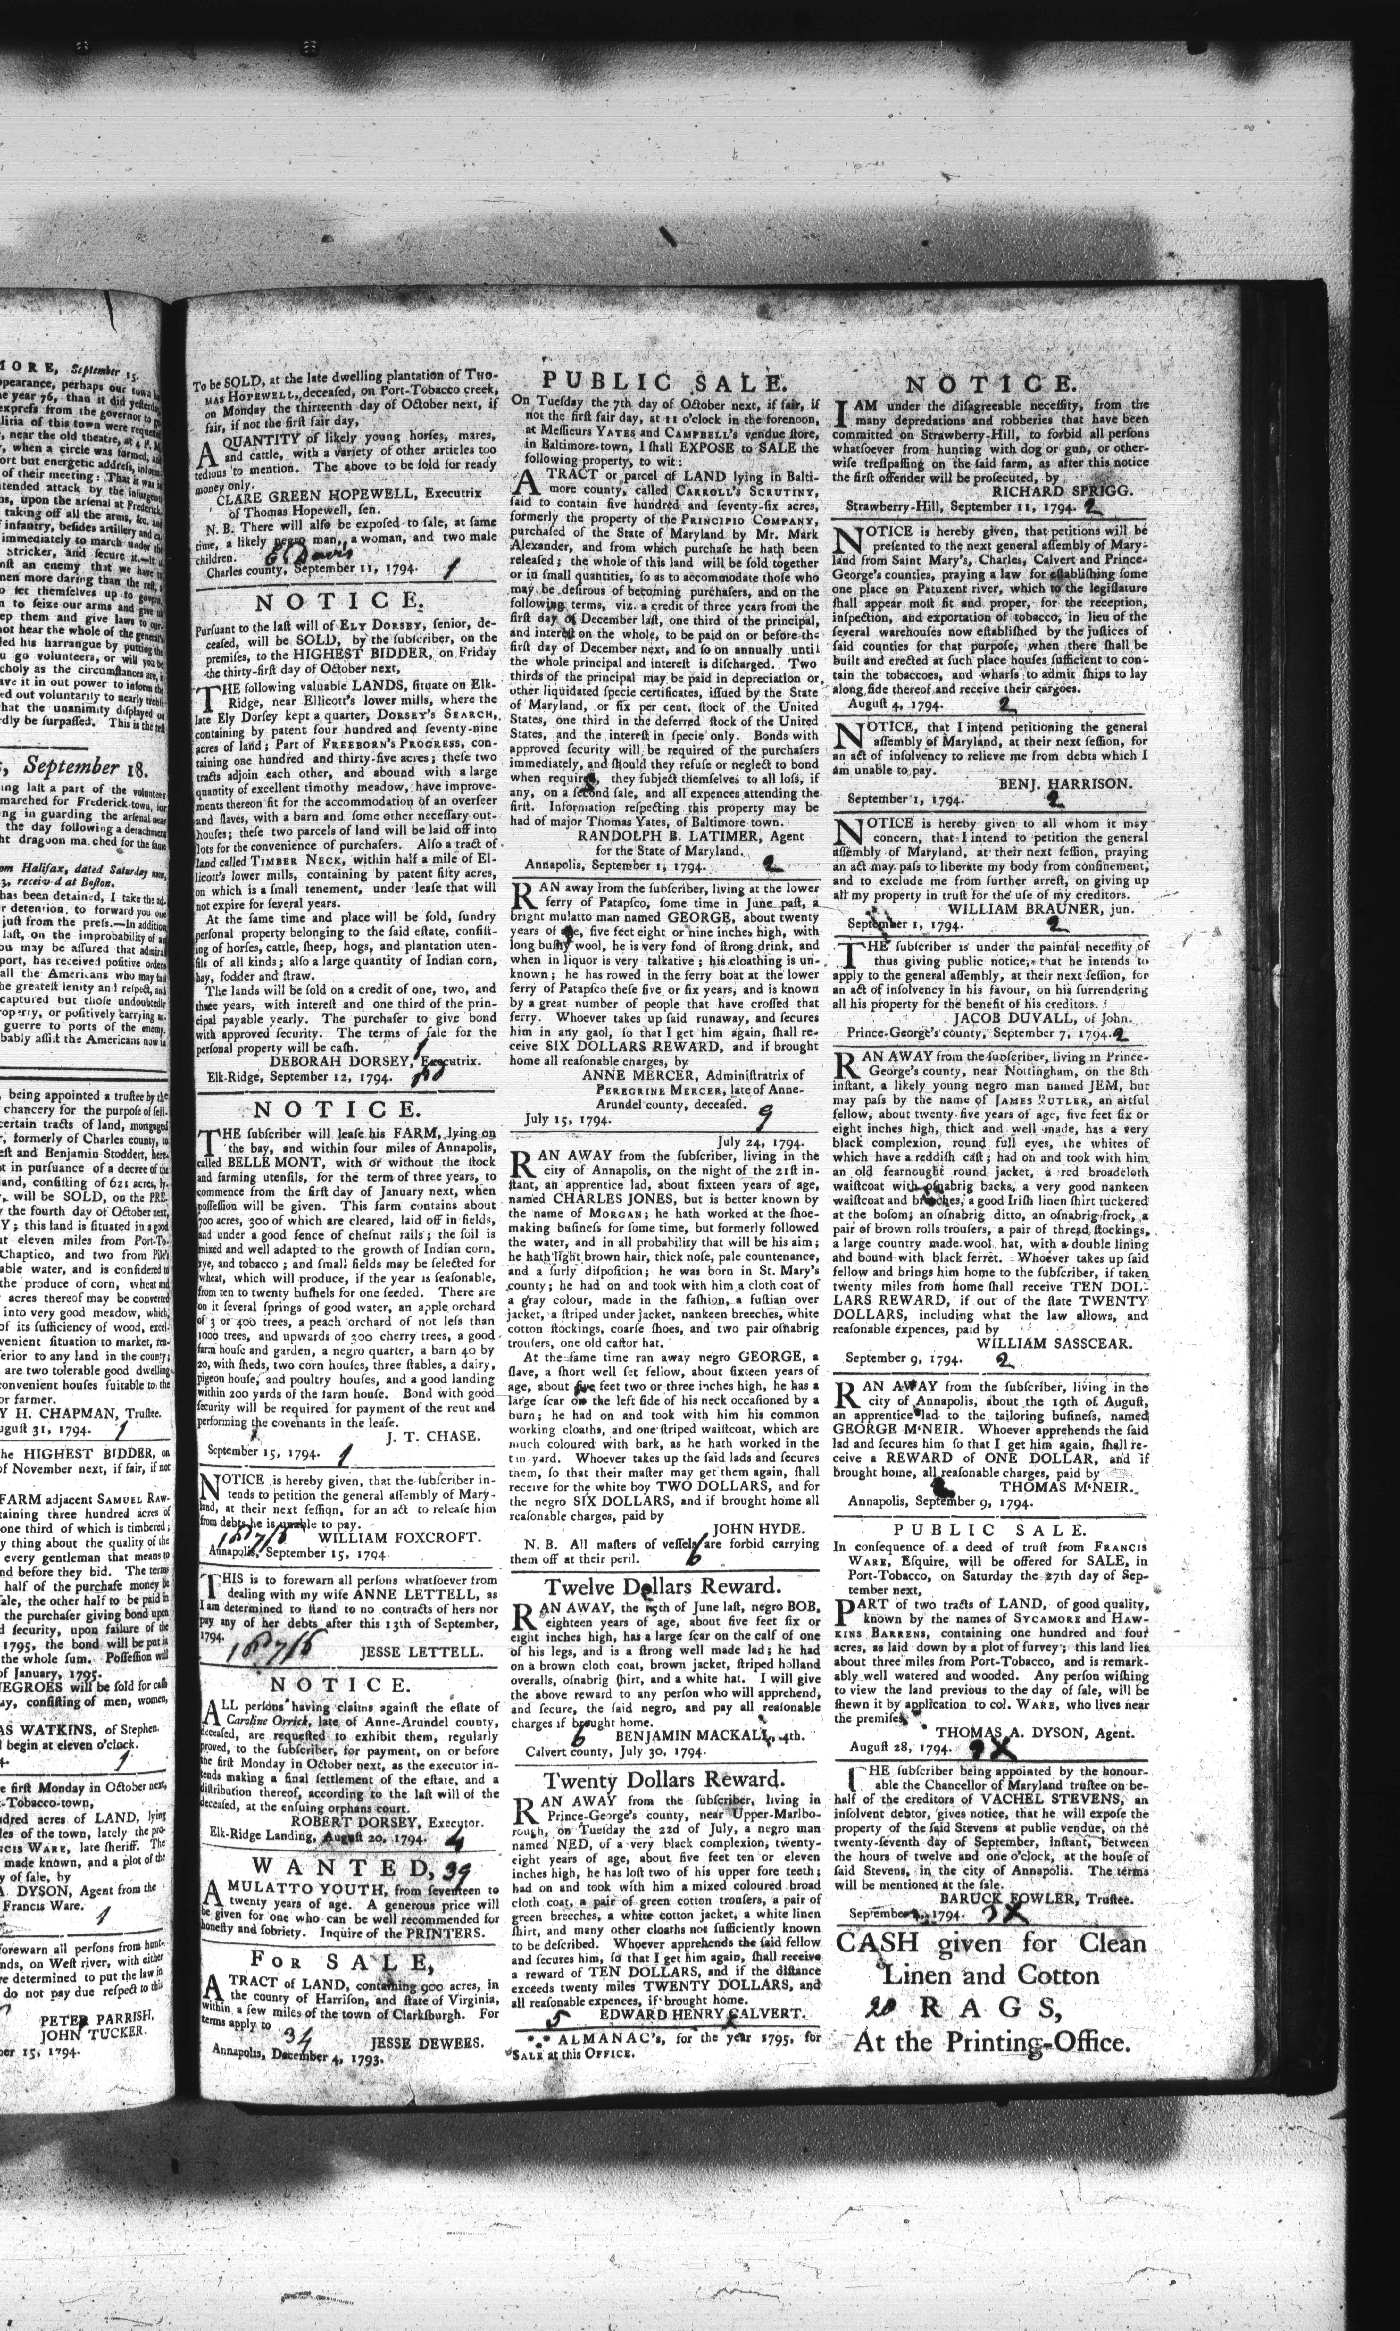 MORE, September 15.
, September 18.
Y H. CHAPMAN, Trustee.
AS WATKINS, of Stephen.
PETER PARRISH,
JOHN TUCKER.
To be SOLD, at the late dwelling plantation of THO-
MAS HOPEWELL, deceased, on Port-Tobacco creek,
on Monday the thirteenth day of October next, if
fair, if not the first fair day,
A QUANTITY of likely young horses, mares,
and cattle, with a variety of other articles too
tedious to mention. The above to be sold for ready
money only.
CLARE GREEN HOPEWELL, Executrix
of Thomas Hopewell, sen.
N. B. There will also be exposed to sale, at same
time, a likely negro man, a woman, and two male
children.
Charles county, September 11, 1794. 1
NOTICE.
Pursuant to the last will of ELY DORSEY, senior, de-
ceased, will be SOLD, by the subscriber, on the
premises, to the HIGHEST BIDDER, on Friday
the thirty-first day of October next,
THE following valuable LANDS, situate on Elk-
Ridge, near Ellicott's lower mills, where the
late Ely Dorsey kept a quarter, DORSEY'S SEARCH,
containing by patent four hundred and seventy-nine
acres of land; Part of FREEBORN'S PROGRESS, con-
taining one hundred and thirty-five acres; these two
tracts adjoin each other, and abound with a large
quantity of excellent timothy meadow, have improve-
ments thereon fit for the accommodation of an overseer
and slaves, with a barn and some other necessary out-
houses; these two parcels of land will be laid off into
lots for the convenience of purchasers. Also a tract of
land called TIMBER NECK, within half a mile of El-
licott's lower mills, containing by patent fifty acres,
on which is a small tenement, under lease that will
not expire for several years.
At the same time and place will be sold, sundry
personal property belonging to the said estate, consist-
ing of horses, cattle, sheep, hogs, and plantation uten-
sils of all kinds; also a large quantity of Indian corn,
hay, fodder and straw.
The lands will be sold on a credit of one, two, and
three years, with interest and one third of the prin-
cipal payable yearly. The purchaser to give bond
with approved security. The terms of sale for the
personal property will be cash.
DEBORAH DORSEY, Executrix.
Elk-Ridge, September 12, 1794.
NOTICE.
THE subscriber will lease his FARM, lying on
the bay, and within four miles of Annapolis,
called BELLE MONT, with or without the stock
and farming utensils, for the term of three years, to
commence from the first day of January next, when
possession will be given. This farm contains about
700 acres, 300 of which are cleared, laid off in fields,
and under a good fence of chesnut rails; the soil is
mixed and well adapted to the growth of Indian corn,
rye, and tobacco; and small fields may be selected for
wheat, which will produce, if the year is seasonable,
from ten to twenty bushels for one seeded. There are
on it several springs of good water, an apple orchard
of 3 or 400 trees, a peach orchard of not less than
1000 trees, and upwards of 200 cherry trees, a good
farm house and garden, a negro quarter, a barn 40 by
20, with sheds, two corn houses, three stables, a dairy,
pigeon house, and poultry houses, and a good landing
within 200 yards of the farm house. Bond with good
security will be required for payment of the rent and
performing the covenants in the lease.
J. T. CHASE.
September 15, 1794. 1
NOTICE is hereby given, that the subscriber in-
tends to petition the general assembly of Mary-
land, at their next session, for an act to release him
from debts he is unable to pay.
WILLIAM FOXCROFT.
Annapolis, September 15, 1794
THIS is to forewarn all persons whatsoever from
dealing with my wife ANNE LETTELL, as
I am determined to stand to no contracts of hers nor
pay any of her debts after this 13th of September,
1794.
JESSE LETTELL.
NOTICE.
ALL persons having claims against the estate of
Caroline Orrick, late of Anne-Arundel county,
deceased, are requested to exhibit them, regularly
proved, to the subscriber, for payment, on or before
the first Monday in October next, as the executor in-
tends making a final settlement of the estate, and a
distribution thereof, according to the last will of the
deceased, at the ensuing orphans court.
ROBERT DORSEY, Executor.
Elk-Ridge Landing, August 20, 1794. 4
WANTED, 39
A MULATTO YOUTH, from seventeen to
twenty years of age. A generous price will
be given for one who can be well recommended for
honesty and sobriety. Inquire of the PRINTERS.
FOR SALE,
A TRACT of LAND, containing 900 acres, in
the county of Harrison, and state of Virginia,
within a few miles of the town of Clarksburgh. For
terms apply to
34 JESSE DEWEES.
Annapolis, December 4, 1793.
PUBLIC SALE.
On Tuesday the 7th day of October next, if fair, if
not the first fair day, at 11 o'clock in the forenoon,
at Messieurs YATES and CAMPBELL'S vendue store,
in Baltimore-town, I shall EXPOSE to SALE the
following property, to wit:
A TRACT or parcel of LAND lying in Balti-
more county, called CARROLL'S SCRUTINY,
said to contain five hundred and seventy-six acres,
formerly the property of the PRINCIPIO COMPANY,
purchased of the State of Maryland by Mr. Mark
Alexander, and from which purchase he hath been
released; the whole of this land will be sold together
or in small quantities, so as to accommodate those who
may be desirous of becoming purchasers, and on the
following terms, viz. a credit of three years from the
first day of December last, one third of the principal,
and interest on the whole, to be paid on or before the
first day of December next, and so on annually until
the whole principal and interest is discharged. Two
thirds of the principal may be paid in depreciation or
other liquidated specie certificates, issued by the State
of Maryland, or six per cent. stock of the United
States, one third in the deferred stock of the United
States, and the interest in specie only. Bonds with
approved security will be required of the purchasers
immediately, and should they refuse or neglect to bond
when required, they subject themselves to all loss, if
any, on a second sale, and all expences attending the
first. Information respecting this property may be
had of major Thomas Yates, of Baltimore town.
RANDOLPH B. LATIMER, Agent
for the State of Maryland.
Annapolis, September 1, 1794. 2
RAN away from the subscriber, living at the lower
ferry of Patapsco, some time in June past, a
bright mulatto man named GEORGE, about twenty
years of age, five feet eight or nine inches high, with
long bushy wool, he is very fond of strong drink, and
when in liquor is very talkative; his cloathing is un-
known; he has rowed in the ferry boat at the lower
ferry of Patapsco these five or six years, and is known
by a great number of people that have crossed that
ferry. Whoever takes up said runaway, and secures
him in any gaol, so that I get him again, shall re-
ceive SIX DOLLARS REWARD, and if brought
home all reasonable charges, by
ANNE MERCER, Administratrix of
PEREGRINE MERCER, late of Anne-
Arundel county, deceased.
July 15, 1794. 9
July 24, 1794.
RAN AWAY from the subscriber, living in the
city of Annapolis, on the night of the 21st in-
stant, an apprentice lad, about sixteen years of age,
named CHARLES JONES, but is better known by
the name of MORGAN; he hath worked at the shoe-
making business for some time, but formerly followed
the water, and in all probability that will be his aim;
he hath light brown hair, thick nose, pale countenance,
and a surly disposition; he was born in St. Mary's
county; he had on and took with him a cloth coat of
a gray colour, made in the fashion, a fustian over
jacket, a striped under jacket, nankeen breeches, white
cotton stockings, coarse shoes, and two pair osnabrig
trousers, one old castor hat.
At the same time ran away negro GEORGE, a
slave, a short well set fellow, about sixteen years of
age, about five feet two or three inches high, he has a
large scar on the left side of his neck occasioned by a
burn; he had on and took with him his common
working cloaths, and one striped waistcoat, which are
much coloured with bark, as he hath worked in the
tan yard. Whoever takes up the said lads and secures
them, so that their master may get them again, shall
receive for the white boy TWO DOLLARS, and for
the negro SIX DOLLARS, and if brought home all
reasonable charges, paid by
JOHN HYDE.
N. B. All masters of vessels are forbid carrying
them off at their peril. 6
Twelve Dollars Reward.
RAN AWAY, the 15th of June last, negro BOB,
eighteen years of age, about five feet six or
eight inches high, has a large scar on the calf of one
of his legs, and is a strong well made lad; he had
on a brown cloth coat, brown jacket, striped holland
overalls, osnabrig shirt, and a white hat. I will give
the above reward to any person who will apprehend,
and secure, the said negro, and pay all reasonable
charges if brought home.
6 BENJAMIN MACKALL, 4th.
Calvert county, July 30, 1794.
Twenty Dollars Reward.
RAN AWAY from the subscriber, living in
Prince-George's county, near Upper-Marlbo-
rough, on Tuesday the 22d of July, a negro man
named NED, of a very black complexion, twenty-
eight years of age, about five feet ten or eleven
inches high, he has lost two of his upper fore teeth;
had on and took with him a mixed coloured broad
cloth coat, a pair of green cotton trousers, a pair of
green breeches, a white cotton jacket, a white linen
shirt, and many other cloaths not sufficiently known
to be described. Whoever apprehends the said fellow
and secures him, so that I get him again, shall receive
a reward of TEN DOLLARS, and if the distance
exceeds twenty miles TWENTY DOLLARS, and
all reasonable expences, if brought home.
5 EDWARD HENRY CALVERT.
*** ALMANAC's, for the year 1795, for
SALE at this OFFICE.
NOTICE.
I AM under the disagreeable necessity, from the
many depredations and robberies that have been
committed on Strawberry-Hill, to forbid all persons
whatsoever from hunting with dog or gun, or other-
wise trespassing on the said farm, as after this notice
the first offender will be prosecuted, by
RICHARD SPRIGG.
Strawberry-Hill, September 11, 1794. 2
NOTICE is hereby given, that petitions will be
presented to the next general assembly of Mary-
land from Saint Mary's, Charles, Calvert and Prince-
George's counties, praying a law for establishing some
one place on Patuxent river, which to the legislature
shall appear most fit and proper, for the reception,
inspection, and exportation of tobacco, in lieu of the
several warehouses now established by the justices of
said counties for that purpose, when there shall be
built and erected at such place houses sufficient to con-
tain the tobaccoes, and wharfs to admit ships to lay
along side thereof and receive their cargoes.
August 4, 1794. 2
NOTICE, that I intend petitioning the general
assembly of Maryland, at their next session, for
an act of insolvency to relieve me from debts which I
am unable to pay.
BENJ. HARRISON.
September 1, 1794. 2
NOTICE is hereby given to all whom it may
concern, that I intend to petition the general
assembly of Maryland, at their next session, praying
an act may pass to liberate my body from confinement,
and to exclude me from further arrest, on giving up
all my property in trust for the use of my creditors.
WILLIAM BRAUNER, jun.
September 1, 1794. 2
THE subscriber is under the painful necessity of
thus giving public notice, that he intends to
apply to the general assembly, at their next session, for
an act of insolvency in his favour, on his surrendering
all his property for the benefit of his creditors.
JACOB DUVALL, of John.
Prince-George's county, September 7, 1794. 2
RAN AWAY from the subscriber, living in Prince-
George's county, near Nottingham, on the 8th
instant, a likely young negro man named JEM, but
may pass by the name of JAMES BUTLER, an artful
fellow, about twenty-five years of age, five feet six or
eight inches high, thick and well made, has a very
black complexion, round full eyes, the whites of
which have a reddish cast; had on and took with him
an old fearnought round jacket, a red broadcloth
waistcoat with osnabrig backs, a very good nankeen
waistcoat and breeches, a good Irish linen shirt tuckered
at the bosom; an osnabrig ditto, an osnabrig frock, a
pair of brown rolls trousers, a pair of thread stockings,
a large country made wool hat, with a double lining
and bound with black ferret. Whoever takes up said
fellow and brings him home to the subscriber, if taken
twenty miles from home shall receive TEN DOL-
LARS REWARD, if out of the state TWENTY
DOLLARS, including what the law allows, and
reasonable expences, paid by
WILLIAM SASSCEAR.
September 9, 1794. 2
RAN AWAY from the subscriber, living in the
city of Annapolis, about the 19th of August,
an apprentice lad to the tailoring business, named
GEORGE M'NEIR. Whoever apprehends the said
lad and secures him so that I get him again, shall re-
ceive a REWARD of ONE DOLLAR, and if
brought home, all reasonable charges, paid by
THOMAS M'NEIR.
Annapolis, September 9, 1794.
PUBLIC SALE.
In consequence of a deed of trust from FRANCIS
WARE, Esquire, will be offered for SALE, in
Port-Tobacco, on Saturday the 27th day of Sep-
tember next,
PART of two tracts of LAND, of good quality,
known by the names of SYCAMORE and HAW-
KINS BARRENS, containing one hundred and four
acres, as laid down by a plot of survey; this land lies
about three miles from Port-Tobacco, and is remark-
ably well watered and wooded. Any person wishing
to view the land previous to the day of sale, will be
shewn it by application to col. WARE, who lives near
the premises.
THOMAS A. DYSON, Agent.
August 28, 1794. X
THE subscriber being appointed by the honour-
able the Chancellor of Maryland trustee on be-
half of the creditors of VACHEL STEVENS, an
insolvent debtor, gives notice, that he will expose the
property of the said Stevens at public vendue, on the
twenty-seventh day of September, instant, between
the hours of twelve and one o'clock, at the house of
said Stevens, in the city of Annapolis. The terms
will be mentioned at the sale.
BARUCK FOWLER, Trustee.
September 1794. 3X
CASH given for Clean
Linen and Cotton
20 RAGS,
At the Printing-Office.